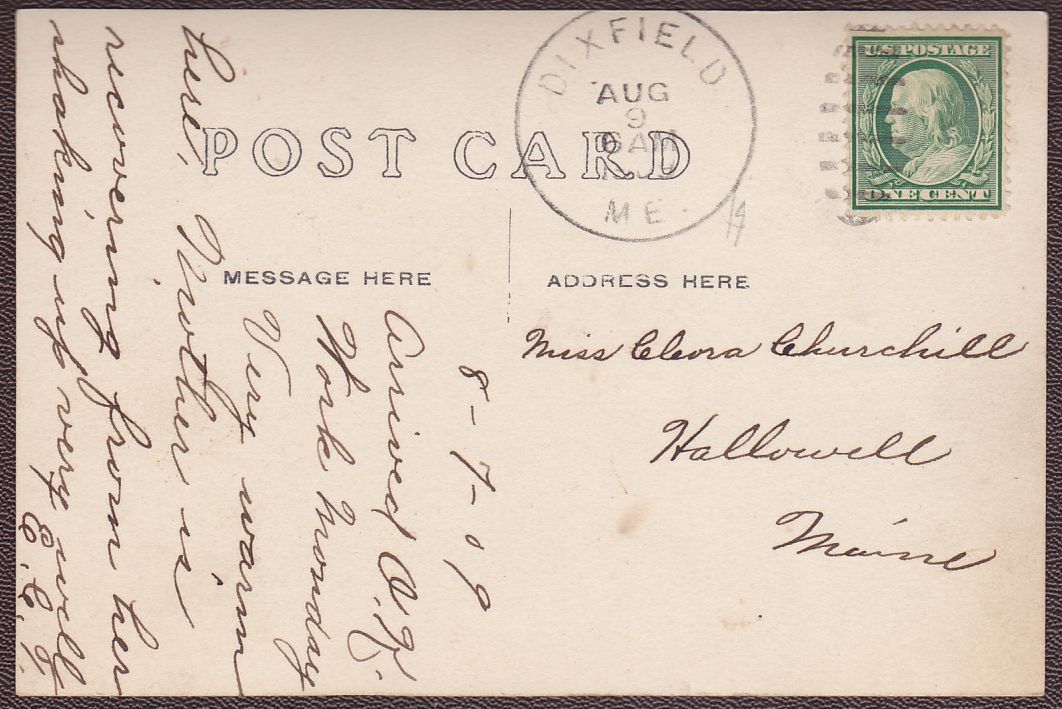 DIXFIELD
AUG
9
6AM
ME.
U.S. POSTAGE
ONE CENT
POST CARD
MESSAGE HERE
ADDRESS HERE
8-7-09
Arrived O.K.
Work Monday
Very warm
here. Mother is
recovering from her
shaking up very well
Miss Cleora Churchill
Hallowell
Maine